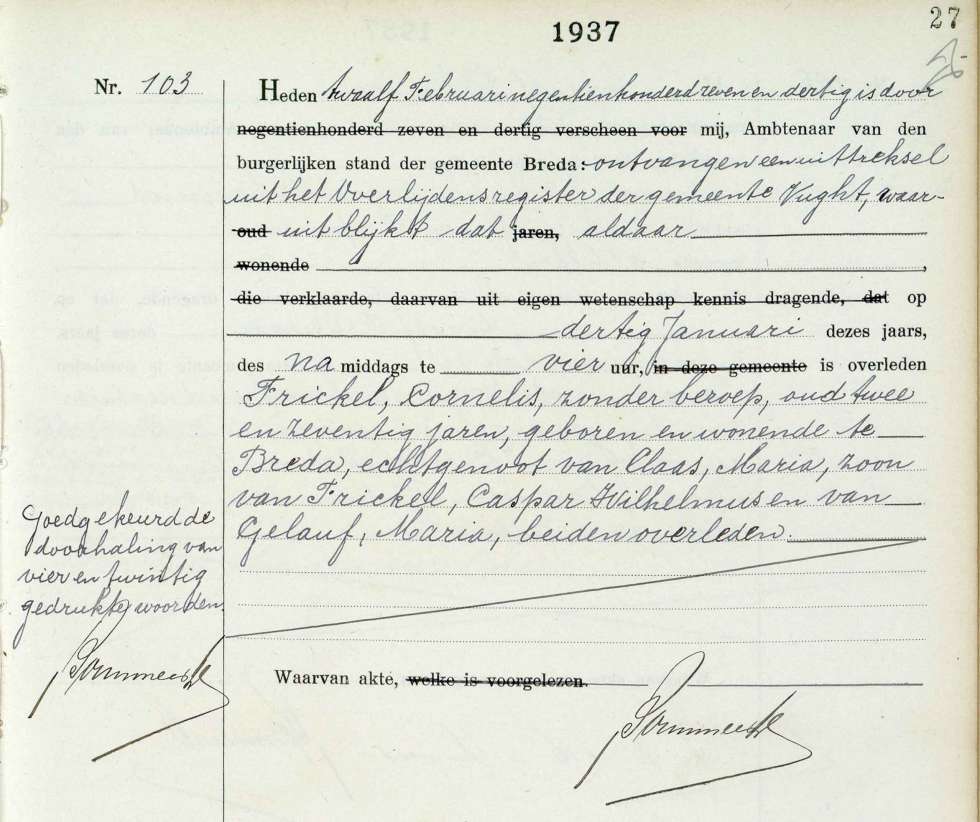 1937
27
Nr. 103
Heden twaalf Februari negentienhonderd zeven en dertig is door
negentienhonderd zeven en dertig verscheen voor mij, Ambtenaar van den
burgerlijken stand der gemeente Breda: ontvangen een uittreksel
uit het Overlijdensregister der gemeente Vught, waar-
oud uit blijkt dat jaren, aldaar
wonende ,
die verklaarde, daarvan uit eigen wetenschap kennis dragende, dat op
dertig Januari dezes jaars,
des na middags te vier uur, in deze gemeente is overleden
Frickel, Cornelis, zonder beroep, oud twee
en zeventig jaren, geboren en wonende te
Breda, echtgenoot van Claas, Maria, zoon
van Frickel, Caspar Wilhelmus en van
Gelauf, Maria, beiden overleden.
Goedgekeurd de
doorhaling van
vier en twintig
gedrukte woorden.
Waarvan akte, welke is voorgelezen.